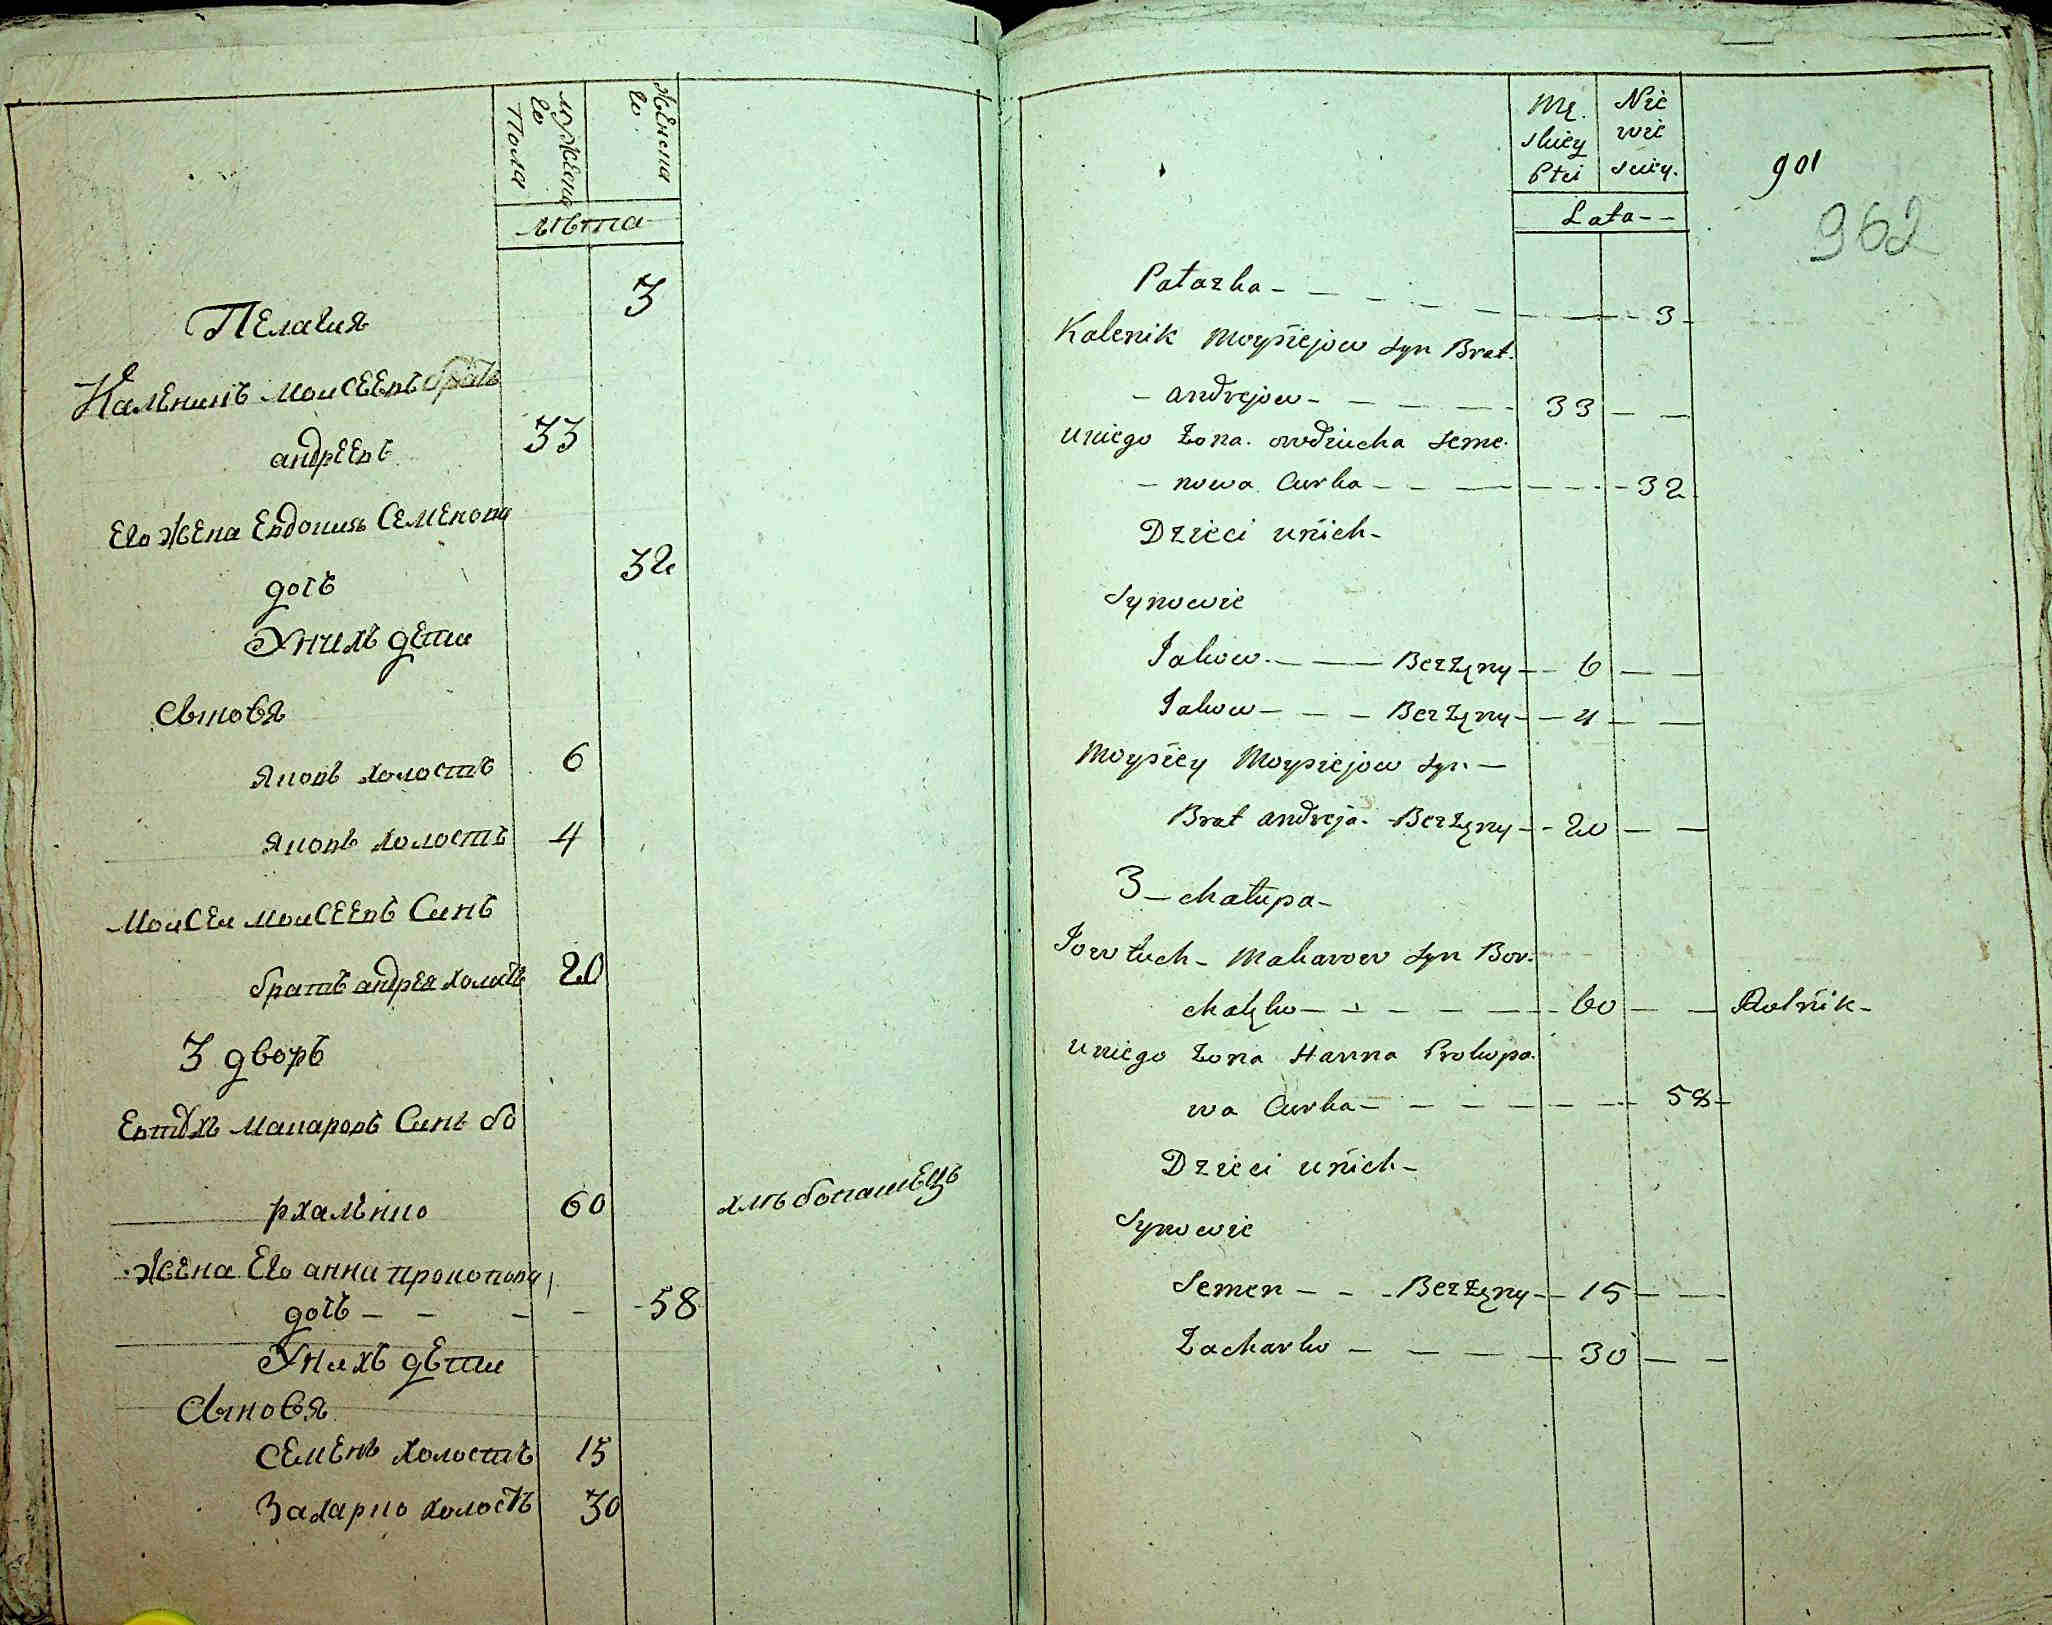 мужеска
го
Пола
женска
го
лѣта
Пелагия 3
Каленикъ Моисеевъ братъ
андреевъ 33
Его жена Евдокия Семенова
дочь 32
Унихъ дети
Сыновя
Яковъ холостъ 6
Яковъ холостъ 4
Моисеи Моисеевъ Синъ
братъ андрея холостъ 20
3 дворъ
Евтухъ Макаровъ Синъ бо
рхаленко 60 хлѣбопашецъ
жена Его анна прокопова
дочь - - - - - 58
Унихъ дети
Сыновя
Семенъ холостъ 15
Захарко холостъ 30
Mę.
skiey
Płci
Nie
wie
sciey.
Lata - -
901
962
Pałazka - - - - - - - - 3 -
Kalenik Moysiejow syn Brat.
- andrejow - - - - - 33 - -
uniego żona. owdiucha seme.
- nowa Curka - - - - - - 32
Dzieci unich -
Synowie
Jakow - - Bezżęny - 6 - -
Jakow - - - Bezżęny - - 4 - -
Moysiey Moysiejow syn -
Brat andreja - Bezżęny - - 20 - -
3 - chałupa -
Jowtuch - Makarow syn Bor.
chałęko - - - - - - 60 - - Rolnik -
uniego żona Hanna Prokopo.
wa Curka - - - - - - - 58 -
Dzieci unich -
Synowie
Semen - - - Bezżęny - - 15 - -
Zacharko - - - - - 30 - -